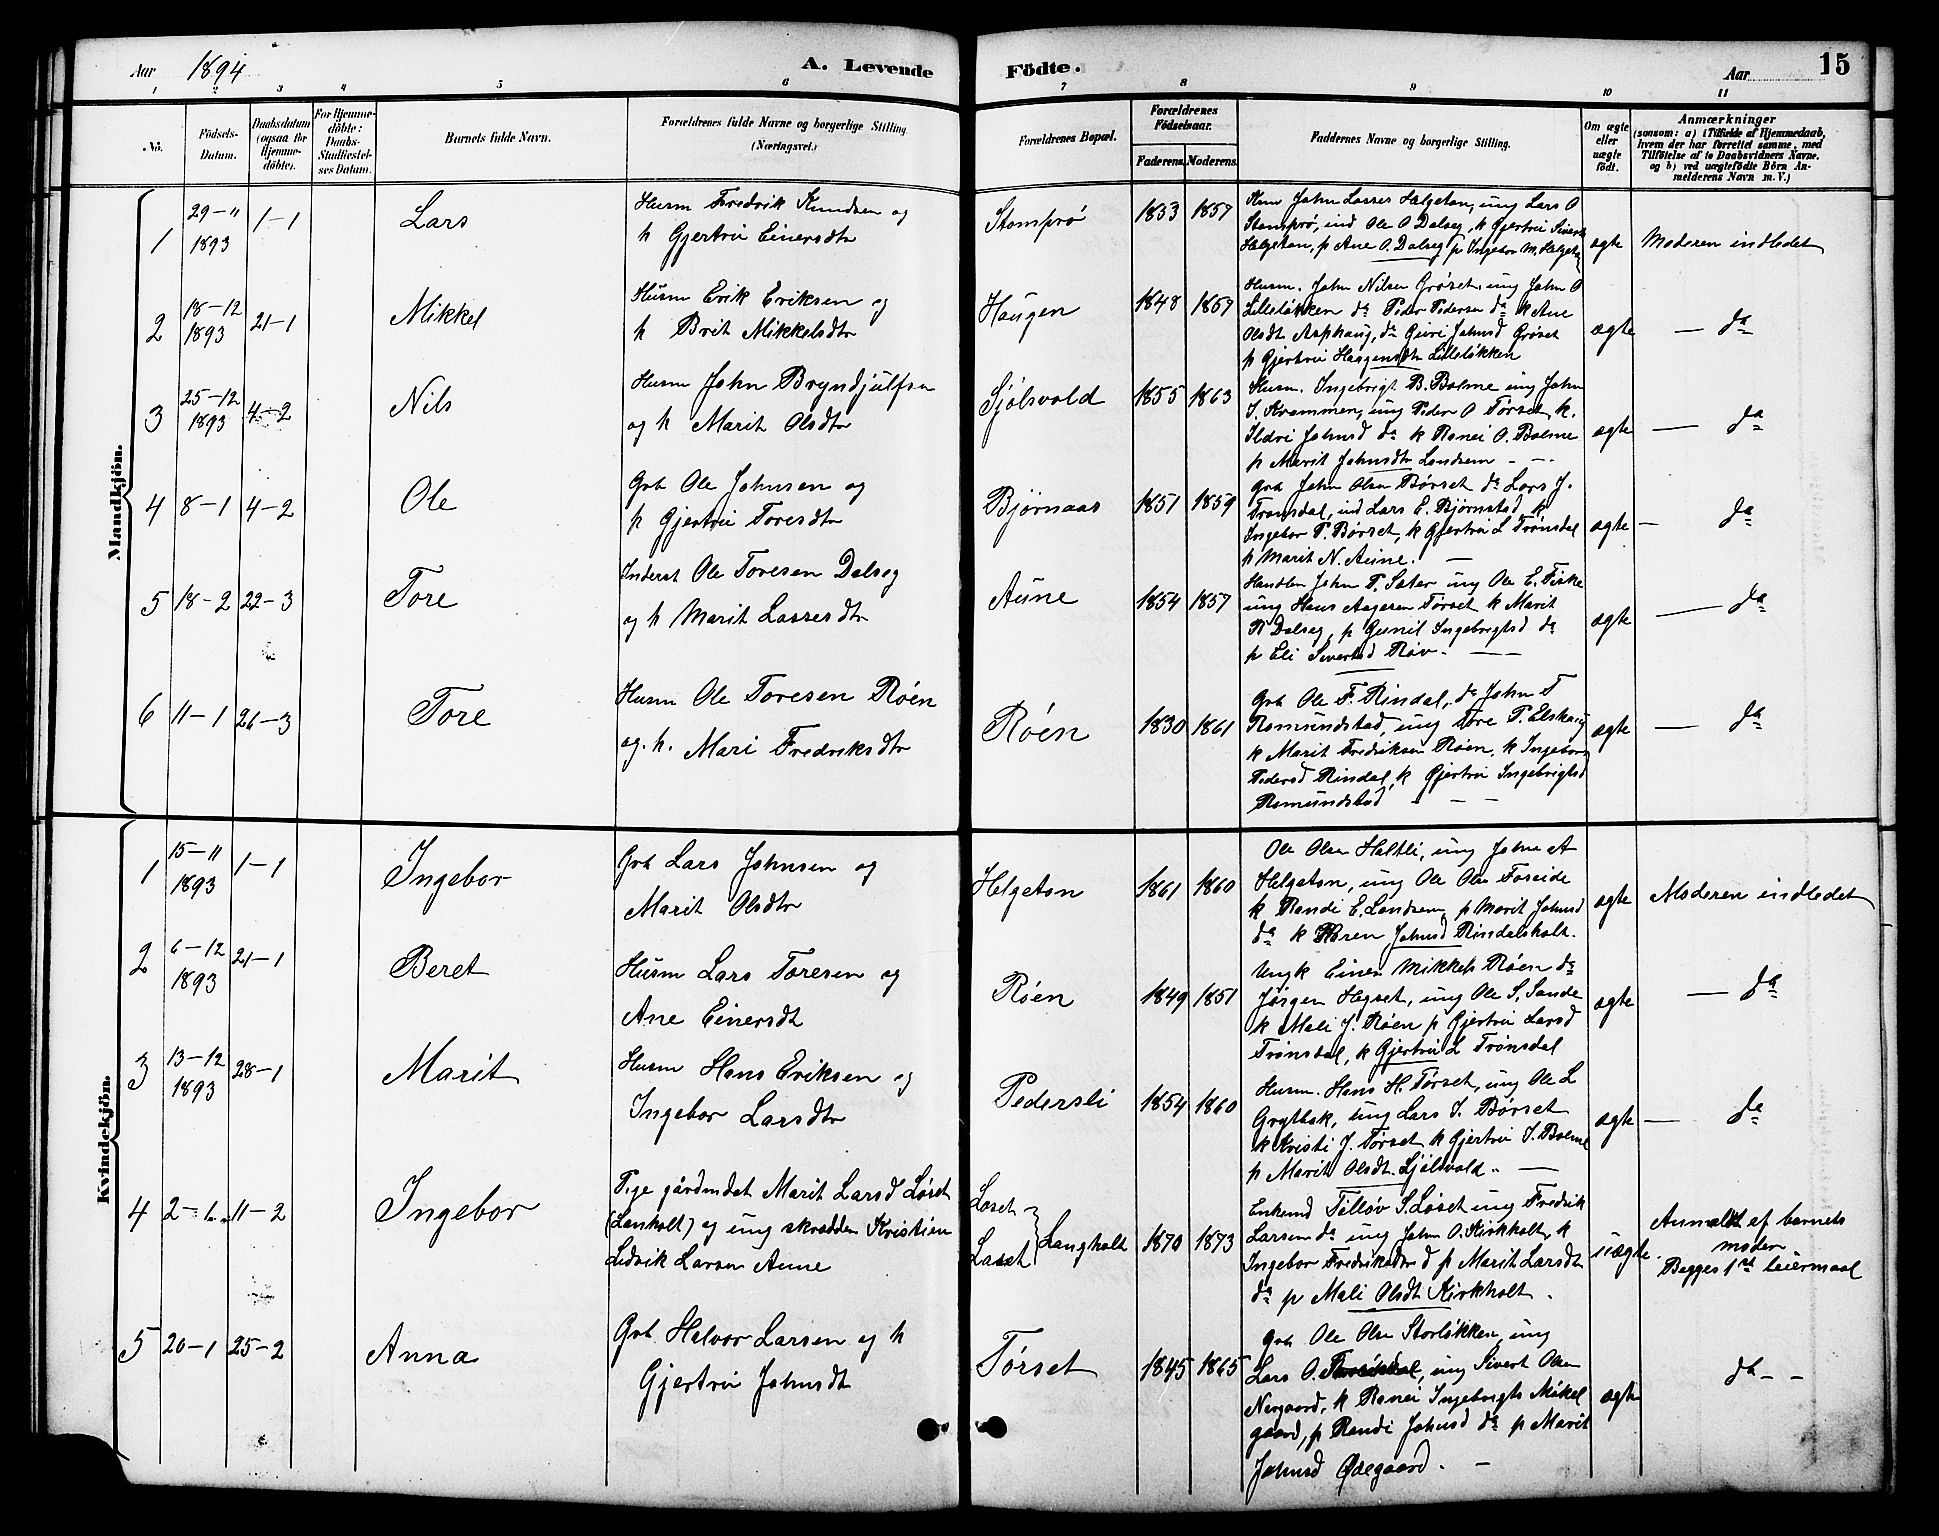 Aar 1894 A. Levende Födte. Aar 15
1 2 3 4 5 6 7 8 9 10 11
No.
Födsels-Datum.
Daabsdatum (ogsaa for Hjemmedöbte).
For Hjemmedöbte: Daabs-Stadfæstelses Datum.
Barnets fulde Navn.
Forældrenes fulde Navne og borgerlige Stilling (Næringsvei.)
Forældrenes Bopæl.
Forældrenes Födselsaar.
Faderens. Moderens.
Faddernes Navne og borgerlige Stilling.
Om ægte eller uægte födt.
Anmærkninger
(saasom: a) i Tilfælde af Hjemmedaab, hvem der har forrettet samme, med Tilföielse af to Daabsvidners Navne. og b) ved uægtefödte Börn Anmelderens Navn m. V.)
Mandkjön.
1 29-11 1893 1-1 Lars
Husm Fredrik Knudsen og
h Gjertrü Einersdtr
Stomprø 1853 1857
Lars O
Stomprø, ind Ole O Dalseg, k Gjertrü Sivertsd
Helgetøn, p Ane O. Dalseg p Ingebor M. Helgetøn
ægte Moderen indledet
2 18-12 1893 21-1 Mikkel
Husm Erik Eriksen og
h Brit Mikkelsdtr
Haugen 1848 1857
Husm. John Nilsen Grøset, ung John O
Lilleløkken da Peder Pedersen da k Ane
Olsdt Asphaug, da Guri Johnsd Grøset
p Gjertrü Haagensdtr Lilleløkken
ægte — da
3 25-12 1893 4-2 Nils
Husm John Bryndjulfsen
og h Marit Olsdtr
Sjølsvold 1855 1863
Husm. Ingebrigt B. Bolme ung John
I. Krammen, ung Peder O Tørset, k.
Ildri Johnsd da k Ranei O. Bolme
p Marit Johnsdtr Landsem - -
ægte — da
4 8-1 4-2 Ole
Grb Ole Johnsen og
h Gjertrü Toresdtr
Bjørnaas 1851 1859
Grb John Olsen Børset da Lars J.
Trønsdal, ind Lars E. Bjørnstad k
Ingebor T. Børset, k Gjertrü L Trønsdal
p Marit N. Aune. —
ægte — da
5 18-2 22-3 Tore
Inderst Ole Toresen Dalseg
og h Marit Lassesdtr
Aune 1854 1857
Handlm John T. Sæter ung Ole E. Fiske
ung Hans Aagesen Tørset k Marit
R Dalseg, p Gunil Ingebrigtsd da
p Eli Sivertsd Røv. —
ægte — da
6 11-1 26-3 Tore
Husm Ole Toresen Røen
og. h. Mari Fredriksdtr
Røen 1830 1861
Grb Ole F. Rindal, da John T
Romundstad, ung Tore P. Elshaug
k Marit Fredriksen Røen, k Ingebor
Pedersd Rindal, k Gjertrü Ingebrigtsd
Romundstad - - -
ægte — da
Kvindekjön.
1 15-11 1893 1-1 Ingebor
Grb Lars Johnsen og
Marit Olsdtr
Helgetøn 1861 1860
Ole Olsen Holtli, ung John A
Helgetøn, ung Ole Olsen Foseide
k Randi E. Landsem, p Marit Johnsd
da k Karen Johnsd Rindalsholt.
ægte Moderen indledet
2 6-12 1893 21-1 Beret
Husm Lars Toresen og
Ane Einersdt
Røen 1849 1851
Ungk Einer Mikkels Røen da
Jørgen Hegset, ung Ole S. Sande
k Mali J. Røen p Gjertrü Larsd
Trønsdal, k Gjertrü L Trønsdal
ægte — da
3 13-12 1893 28-1 Marit
Husm Hans Eriksen og
Ingebor Larsdtr
Pedersli 1854 1860
Husm. Hans H. Tørset, ung Ole L
Grytbak, ung Lars I. Børset
k Kristi J. Tørset k Gjertrü I. Bolme
p Marit Olsdt Sjølsvold. —
ægte — da
4 2-1 11-2 Ingebor
Pige gårdmdat Marit Larsd Løset
(Lanholt) og ung skrædder Kristian
Ludvik Larsen Aune
Løset Langholt
Løset 1870 1873
Enkemd Telløv S. Løset ung Fredrik
Larsen da ung John O. Kirkholt, k
Ingebor Fredriksd p Marit Larsdt
da p Mali Olsdt Kirkholt.
uægte. Anmeldt af barnets
moder
Begges 1ste leiermaal
5 20-1 25-2 Anna
Grb Halvor Larsen og h
Gjertrü Johnsdt
Tørset 1845 1865
Grb Ole Olsen Storløkken, ung
Lars O. ung Sivert Olsen
Nergaard, k Ranei Ingebrigts Møkel
gaard, p Randi Johnsd da p Marit
Johnsd Ødegaard. -
ægte da - -